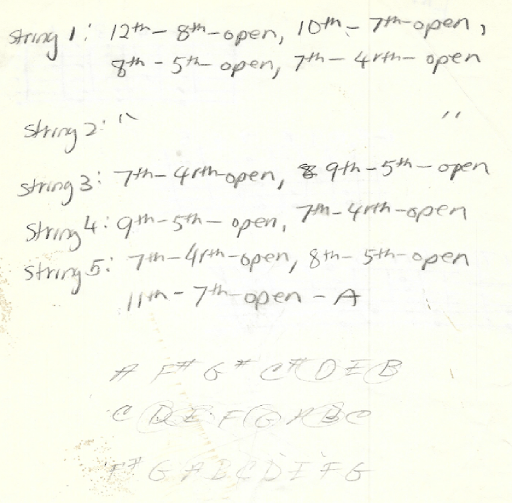 String 1: 12th - 8th - open, 10th - 7th - open,
8th - 5th - open, 7th - 4rth - open
String 2: " "
String 3: 7th - 4rth - open, 9th - 5th - open
String 4: 9th - 5th - open, 7th - 4rth - open
String 5: 7th - 4rth - open, 8th - 5th - open
11th - 7th - open - A
A F# G# C# D E B
C D E F G A B C
F# G A B C D E F G